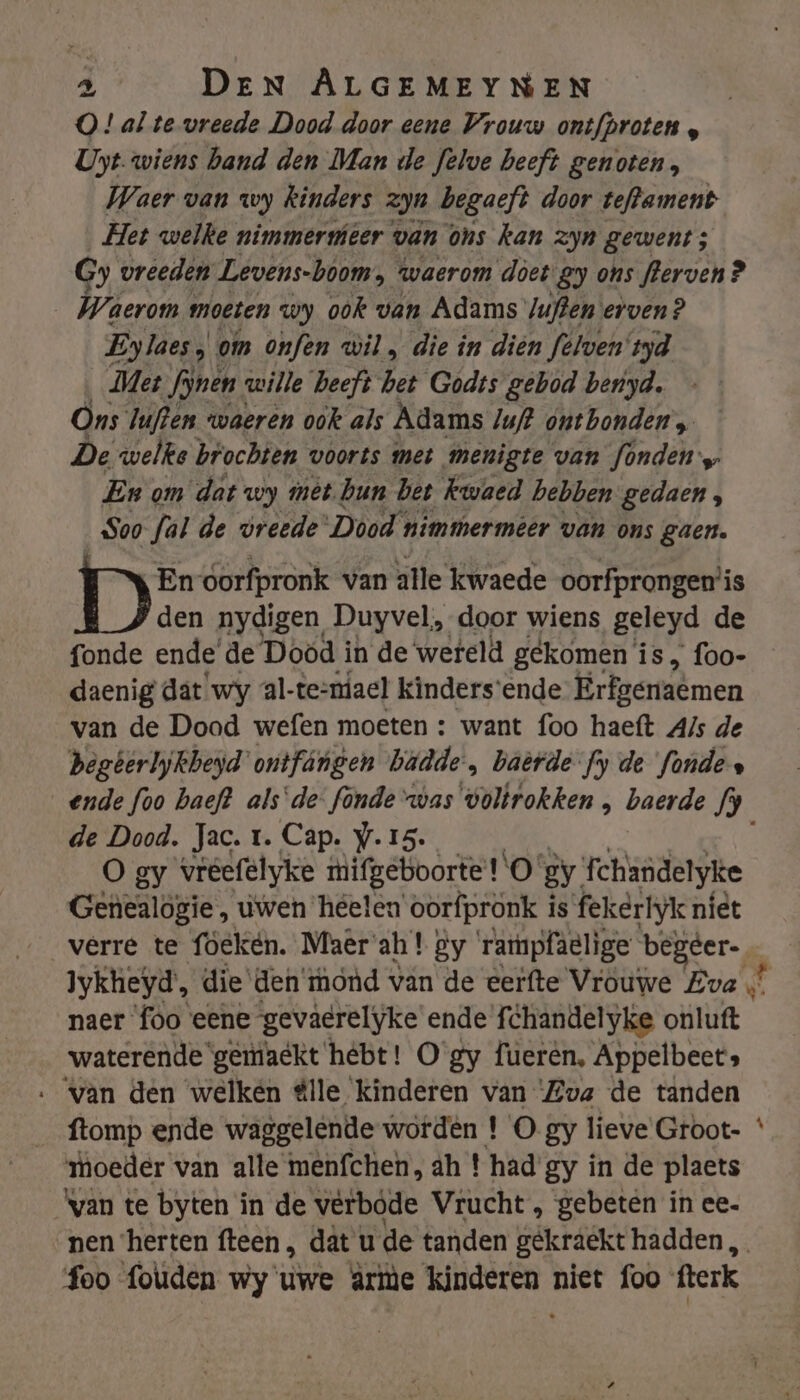 2 DEN ALGEMEYNEN
O! al te vreede Dood door eene Vrouw ontſproten,
Uyt wiens hand den Man de ſelve heeft genoten,
Waer van wy kinders zyn begaeft door teſtament
Het welke nimmermeer van ons kan zyn gewent;
Gy vreeden Levens-boom, waerom doet gy ons ſterven?
Waerom moeten wy ook van Adams luſten erven?
Eylaes, om onſen wil, die in dien ſelven tyd
Met ſynen wille heeft het Godts gebod benyd.
Ons luſten waeren ook als Adams luſt ontbonden,
De welke brochten voorts met menigte van ſonden,
En om dat wy met hun het kwaed hebben gedaen,
Soo ſal de vreede Dood nimmermeer van ons gaen.
DEn oorſpronk van alle kwaede oorſprongen is
den nydigen Duyvel, door wiens geleyd de
ſonde ende de Dood in de wereld gekomen is, ſoo-
daenig dat wy al-te-mael kinders ende Erfgenaemen
van de Dood weſen moeten: want ſoo haeſt Als de
begeerlykheyd ontfangen hadde, baerde ſy de ſonde,
ende ſoo haeſt als de ſonde was voltrokken, baerde ſy
de Dood. Jac. 1. Cap. ℣. 15.
O gy vreeſelyke miſgeboorte! O gy ſchandelyke
Genealogie, uwen heelen oorſpronk is ſekerlyk niet
verre te ſoeken. Maer ah! gy rampſaelige begeer-
lykheyd, die den mond van de eerſte Vrouwe Eva
naer ſoo eene gevaerelyke ende ſchandelyke onluſt
waterende gemaekt hebt! O gy ſueren Appelbeet,
van den welken alle kinderen van Eva de tanden
ſtomp ende waggelende worden! O gy lieve Groot-
moeder van alle menſchen, ah! had gy in de plaets
van te byten in de verbode Vrucht, gebeten in ee-
nen herten ſteen, dat u de tanden gekraekt hadden,
ſoo ſouden wy uwe arme kinderen niet ſoo ſterk